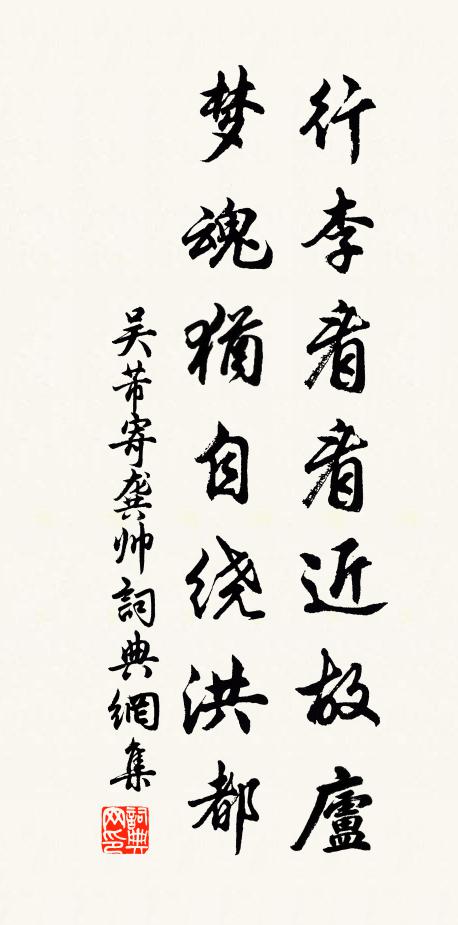 行李看看近故廬
梦魂猶自绕洪都
吴芾寄龚帅詞典網集
詞典网印